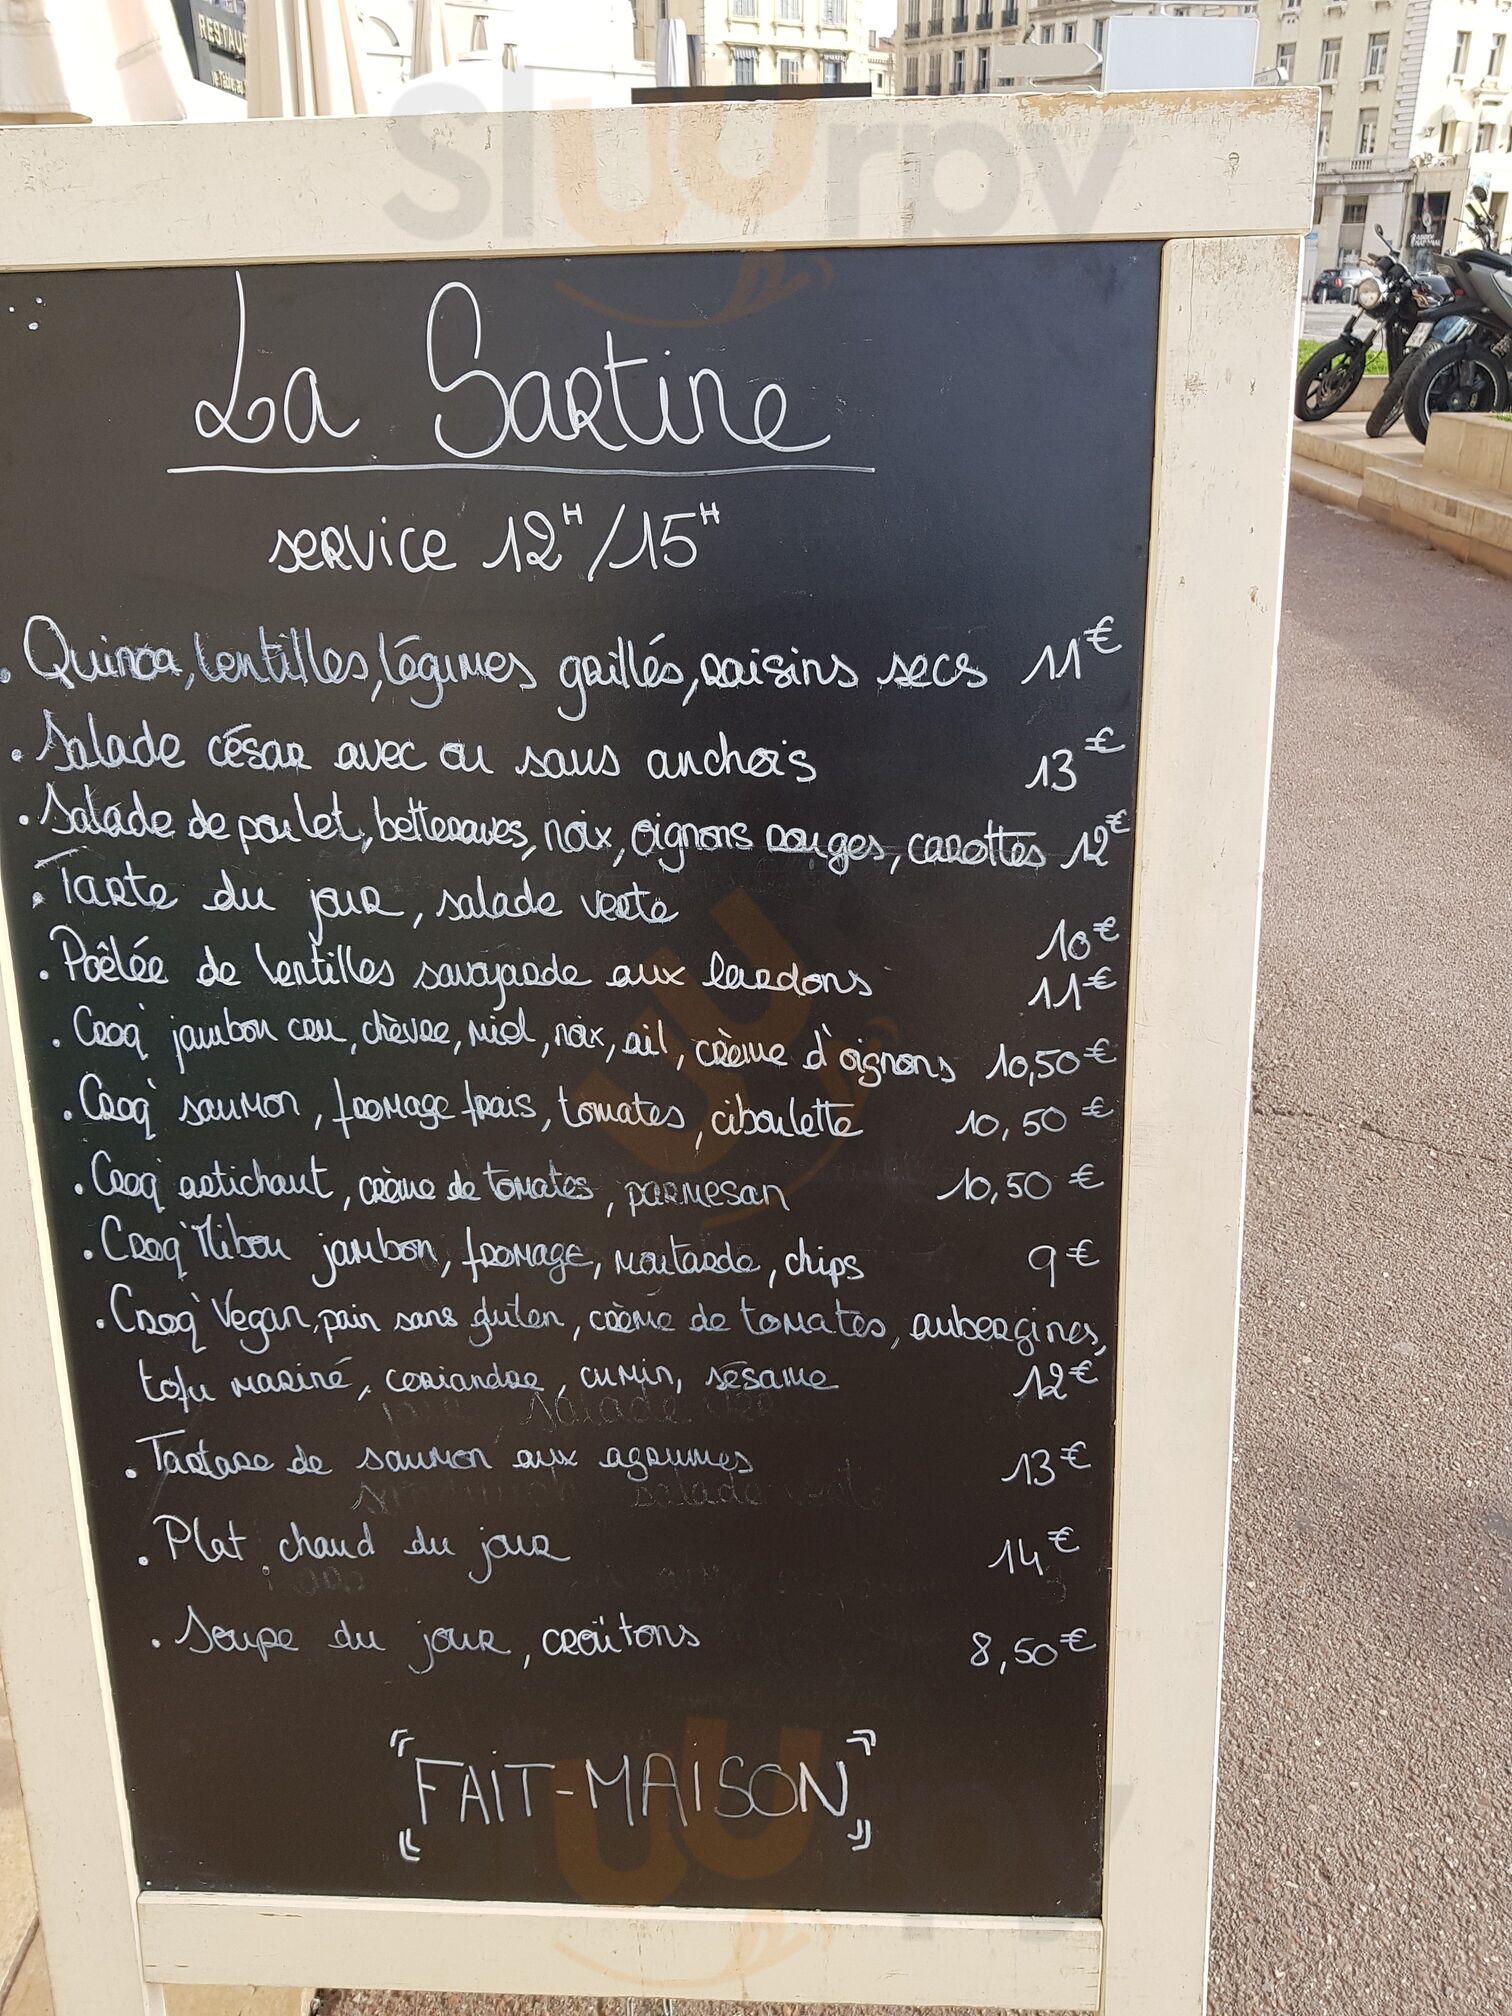 RESTAU
sluurpy
La Sartine
service 12H/15H
. Quinoa, lentilles, légumes grillés, raisins secs 11€
. Salade césar avec ou sans anchois 13€
. Salade de poulet, betteraves, noix, oignons rouges, carottes 12€
. Tarte du jour, salade verte 10€
. Poêlée de lentilles savoyarde aux lardons 11€
. Croq' jambon cru, chèvre, miel, noix, ail, crème d'oignons 10,50€
. Croq' saumon, fromage frais, tomates, ciboulette 10,50€
. Croq' artichaut, crème de tomates, parmesan 10,50€
. Croq' Mibou jambon, fromage, moutarde, chips 9€
. Croq' Vegan, pain sans gluten, crème de tomates, aubergines,
tofu mariné, coriandre, cumin, sésame 12€
. Tartare de saumon aux agrumes 13€
. Plat chaud du jour 14€
. Soupe du jour, croûtons 8,50€
"FAIT-MAISON"